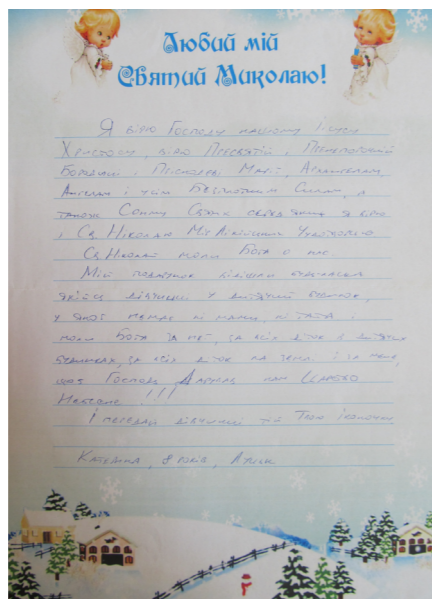 Любий мій
Святий Миколаю!
Я вірю Господу нашому Ісусу
Христосу, вірю Пресвятій, Пренепорочній
Богородиці і Приснодіві Марії, Архангелам,
Ангелам і усім Безплотним Силам, а
також Сонму Святих
і Св Ніколаю Мір Лікійських Чудотворцю
Св Ніколай моли Бога о нас.
Мій подарунок віднеси будь-ласка
якійсь дівчинці у дитячий будинок,
у якої немає ні мами, ні тата і
моли Бога за неї, за всіх діток в дитячих
будинках, за всіх діток на землі і за мене,
щоб Господь дарував нам Царство
Небесне!!!
І передай дівчинці тій Твою іконочку
Катерина, 8 років,